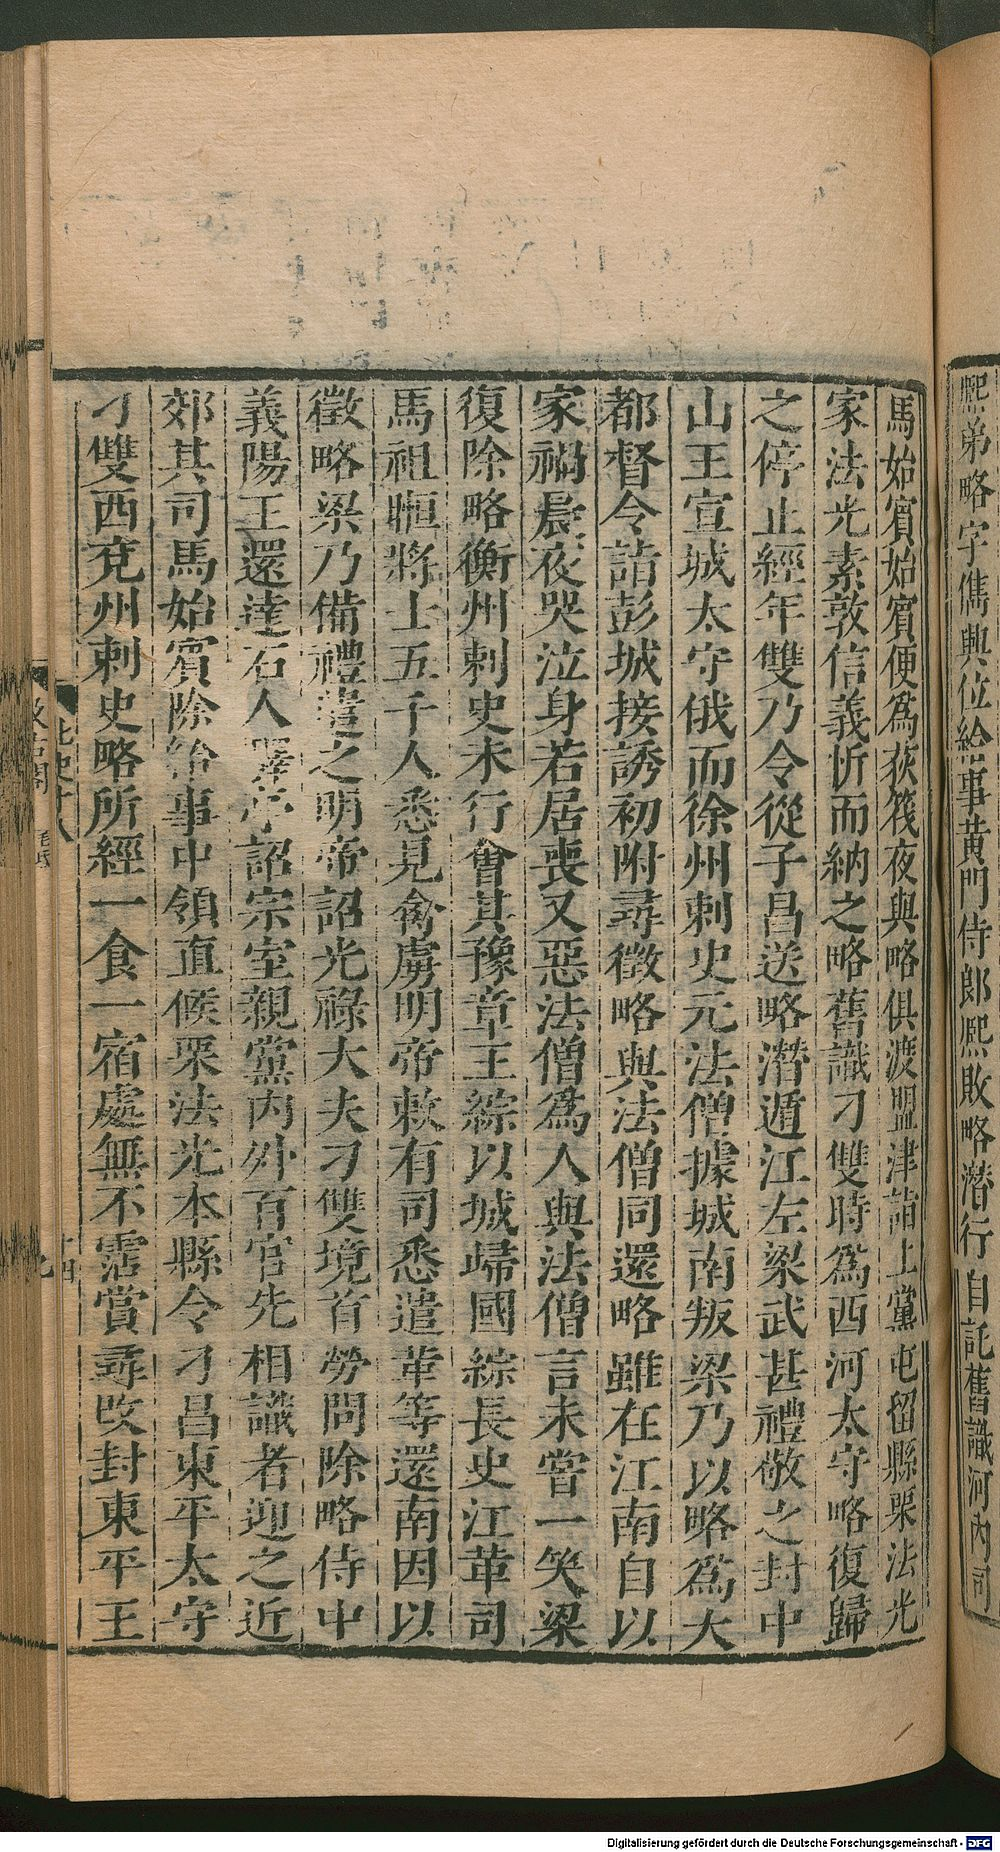 熙弟略字儁興位給事黃門侍郎熙敗略潛行自託舊識河內司
馬始賓始賓便爲荻筏夜與略俱渡盟津詣上黨屯留縣栗法光
家法光素敦信義忻而納之略舊識刁雙時爲西河太守略復歸
之停止經年雙乃令從子昌送略潛遁江左梁武甚禮敬之封中
山王宣城太守俄而徐州刺史元法僧據城南叛梁乃以略爲大
都督令詣彭城接誘初附尋徵略與法僧同還略雖在江南自以
家禍晨夜哭泣身若居喪又惡法僧爲人與法僧言未嘗一笑梁
復除略衡州刺史未行會其豫章王綜以城歸國綜長史江革司
馬祖暅將士五千人悉見禽虜明帝敕有司悉遣革等還南因以
徵略梁乃備禮遣之明帝詔光祿大夫刁雙境首勞問除略侍中
義陽王還達石人驛亭詔宗室親黨內外百官先相識者迎之近
郊其司馬始賓除給事中領直候栗法光本縣令刁昌東平太守
刁雙西兗州刺史略所經一食一宿處無不霑賞尋改封東平王
北史十八
汲古閣
毛氏
Digitalisierung gefördert durch die Deutsche Forschungsgemeinschaft - DFG